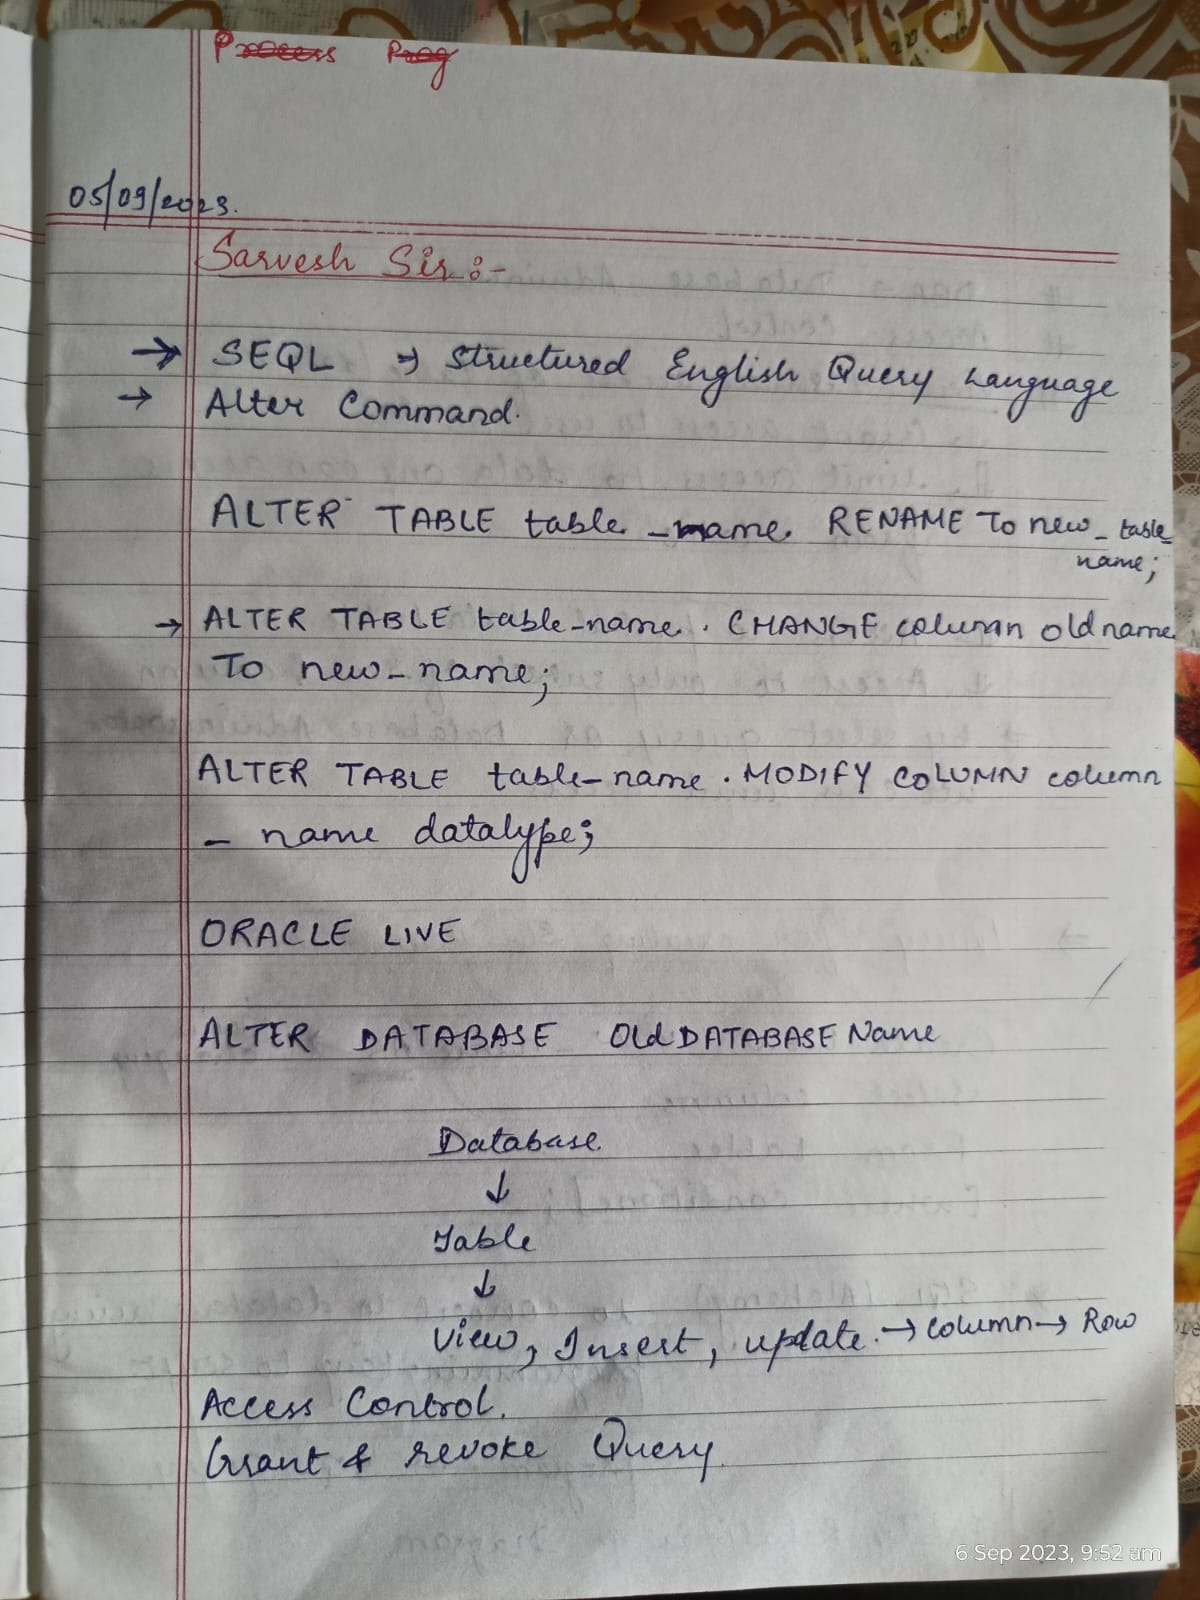 Process Prog
05/09/2023.
Sarvesh Sir :-
→ SEQL → Structured English Query Language
→ Alter Command.
ALTER TABLE table_name. RENAME To new_table_
name;
→ ALTER TABLE table-name. CHANGE column old name
To new-name;
ALTER TABLE table-name. MODIFY COLUMN column
- name datatype;
ORACLE LIVE
ALTER DATABASE Old DATABASE Name
Database.
↓
Table
↓
View, Insert, update. → column → Row
Access Control.
Grant & revoke Query.
6 Sep 2023, 9:52 am